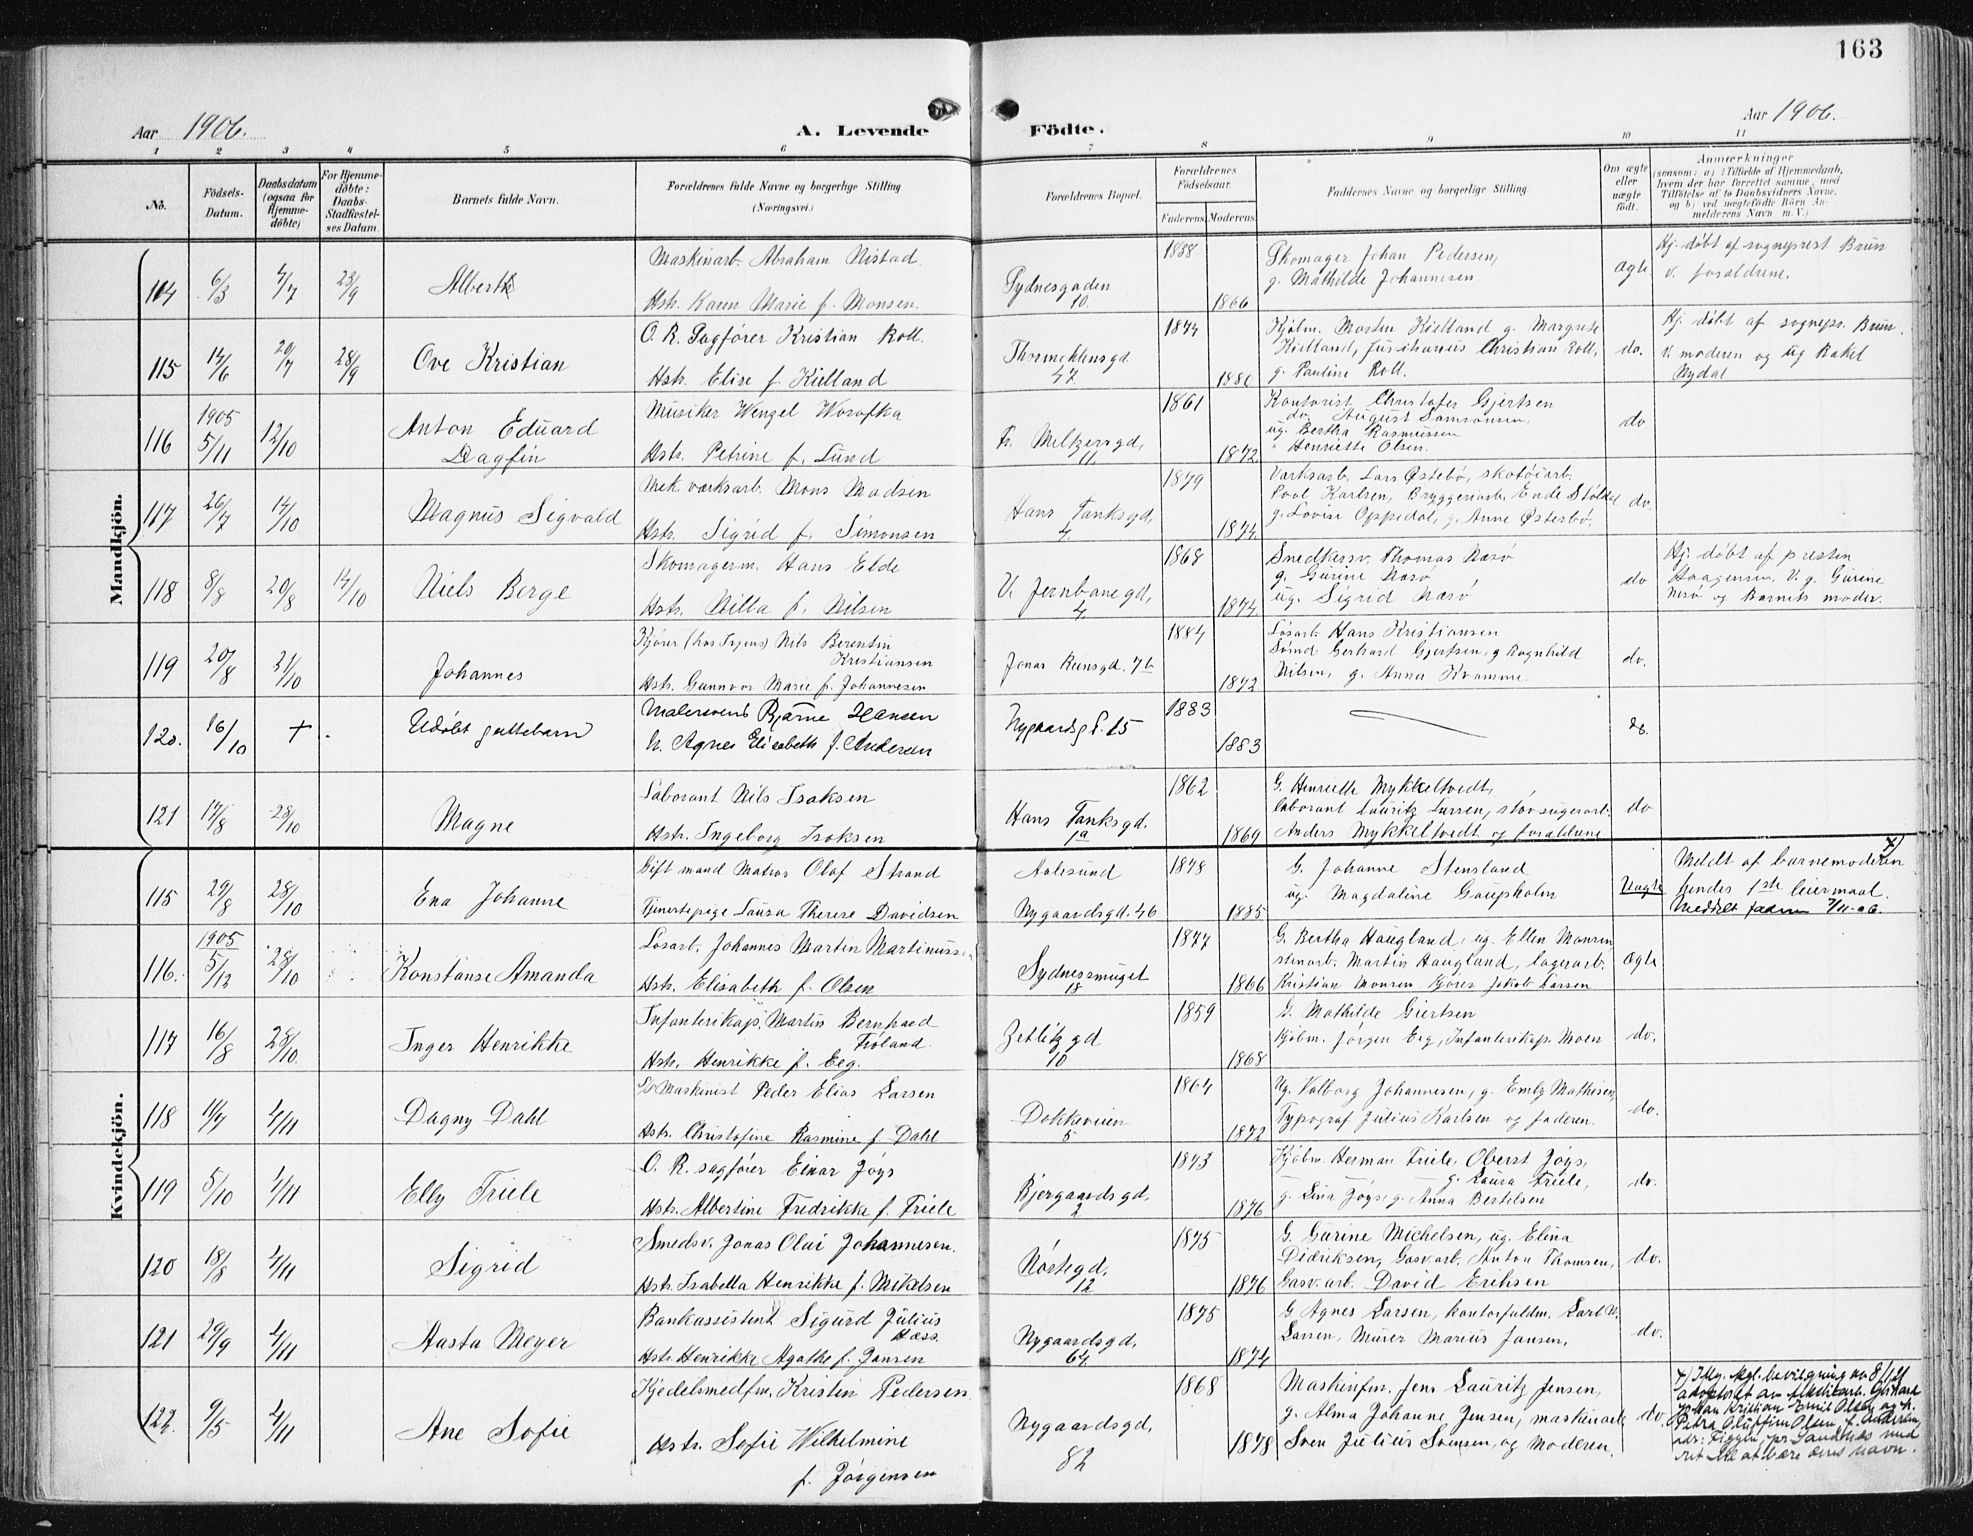 163
Aar 1906.
A. Levende Födte.
Aar 1906.
1 2 3 4 5 6 7 8 9 10 11
No.
Födsels-Datum.
Daabsdatum (ogsaa for Hjemmedöbte)
For Hjemmedöbte: Daabs-Stadfæstelses Datum.
Barnets fulde Navn.
Forældrenes fulde Navne og borgerlige Stilling (Næringsvei.)
Forældrenes Bopæl.
Forældrenes Födselsaar.
Faderens. Moderens.
Faddernes Navne og borgerlige Stilling.
Om ægte eller uægte födt.
Anmærkninger
(saasom: a) i Tilfælde af Hjemmedaab,
hvem der har forrettet samme, med
Tilföielse af to Daabsvidners Navne,
og b) ved uægtefödte Börn Anmelderens Navn m. V.)
Mandkjön.
114 6/3 4/7 23/9 Albert
Maskinarb. Abraham Nistad
Hstr. Karen Marie f. Monsen.
Sydnesgaden 10. 1838 1866
Skomager Johan Pedersen,
g. Mathilde Johannesen
ægte
Hj. døbt af sogneprest Brun
v. forældrene.
115 14/6 20/7 28/9 Ove Kristian
O. R. Sagfører Kristian Roll.
Hstr. Elise f. Kielland
Thormøhlensgd. 47 1874 1880
Kjøbm. Morten Kielland g. Margrete
Kielland, Justitiarius Christian Roll,
g. Pauline Roll.
do.
Hj. døbt af sognepr. Brun.
V. moderen og ug Rakel
Nydal
116 1905 5/11 12/10 Anton Eduard
Dagfin
Musiker Wenzel Worofka
Hstr. Petrine f. Lund
Fr. Meltzersgd, 11. 1861 1872
Kontorist Christofer Gjertsen
do. August Samsonsen,
ug. Bertha Rasmussen
" Henriette Olsen.
do
117 26/7 14/10 Magnus Sigvald
Mek. værksarb. Mons Madsen
Hstr. Sigrid f. Simonsen
Hans Tanksgd, 4. 1879 1874
Værksarb. Lars Østebø, skotøiarb.
Poul Karlsen, Bryggeriarb. Ende Støldal
g. Lovise Oppedal, g. Anne Østerbø,
do.
118 8/8 20/8 14/10 Niels Berge
Skomagerm. Hans Elde
Hstr. Nilla f. Nilsen
V. Jernbanegd, 4. 1868 1874
Snedkersv. Thomas Næsø
g. Gurine Næsø
ug. Sigrid Næsø
do
Hj. døbt af presten
Haagensen, V. g. Gurine
Nesø og Barnets moder.
119 20/8 21/10 Johannes
Kjører (hos Irgens) Nils Berentin
Kristiansen
Hstr. Gunnvor Marie f. Johannesen
Jonas Reinsgd. 76 1884 1872
Løsarb. Hans Kristiansen
Sømd Gerhard Gjertsen, g Ragnhild
Nilsen, g. Anna Kvamme.
do.
120. 16/10 + Udøbt guttebarn
Malersvend Bjarne Hansen
h. Agnes Elisabeth f. Andersen
Nygaardsg. 15 1883 1883
do.
121 17/8 28/10 Magne
Laborant Nils Isaksen
Hstr. Ingeborg Isaksen
Hans Tanksgd. 1a 1862 1869
G. Henriette Mykkeltvedt,
Laborant Lauritz Larsen, støvsugerarb.
Anders Mykkeltvedt og forældrene
do
Kvindekjön.
115 29/8 28/10 Ena Johanne
Gift mand Matros Olaf Strand
Tjenestepige Laura Therese Davidsen
Aalesund
Nygaardsgd. 46 1878 1885
G. Johanne Stensland
ug. Magdaline Gaupholm
Uægte
Meldt af barnemoderen x)
hendes 1ste leiermaal.
Meddelt faderen 7/11-06.
116. 1905 5/12 28/10 Konstanse Amanda
Løsarb. Johannes Martin Martinussen
Hstr. Elisabeth f. Olsen
Sydnessmuget 18 1877 1866
G. Bertha Haugland, ug. Ellen Monsen
stenarb. Martin Haugland, lagerarb.
Kristian Monsen Kjører Jakob Larsen
ægte
117 16/8 28/10. Inger Henrikke
Infanterikap. Martin Bernhard
Fioland.
Hstr. Henrikke f. Eeg.
Zetlitz gd 10 1859 1868
G. Mathilde Giertsen
Kjøbm. Jørgen Eeg, Infanterikap. Moen
do.
118 11/7 4/11 Dagny Dahl
Maskinist Peder Elias Larsen
Hstr. Christofine Rasmine f Dahl
Dokkeveien 5 1864 1872
Ug. Valborg Johannesen, g. Emly Mathisen,
Typograf Julius Karlsen og faderen.
do.
119 5/10 4/11 Elly Friele
O. R. sagfører Einar Jøys
Hstr. Albertine Fredrikke f. Friele
Bjergaardsgd. 2 1873 1876
Kjøbm. Herman Friele, Oberst Jøys,
g. Laura Friele,
g. Lina Jøys, g. Anna Bertelsen
do.
120 18/8 4/11 Sigrid
Smedsv. Jonas Olai Johannesen.
Hstr. Isabella Henrikke f. Mikelsen
Nøstegd. 12 1875 1876
G. Gurine Michelsen, ug. Elina
Didriksen, Gasv.arb. Anton Thomsen,
Gasv.arb. David Eriksen
do.
121 29/9 4/11 Aasta Meyer
Bankassistent Sigurd Julius
Næss
Hstr Henrikke Agathe f. Jansen
Nygaardsgd, 64 1875 1874
G Agnes Larsen, kontorfuldm. Carl N.
Larsen, Murer Marius Jansen,
do.
122. 9/5 4/11 Ane Sofie
Kjedelsmedfm. Kristin Pedersen
Hstr. Sofie Wilhelmine
f. Jørgensen
Nygaardsgd, 82 1868 1878
Maskinfm. Jens Lauritz Jensen,
g. Alma Johanne Jensen, maskinarb
Sven Julius Svensen, og Moderen.
do.
x) Iflg. kgl. bevilgning av 8/1 21
adoptert av
Johan Kristian Emil Olsen og h.
Petra Olufine Olsen f. Andersen,
adr: Figgen, pr Sandnes med
ret til at bære deres navn.